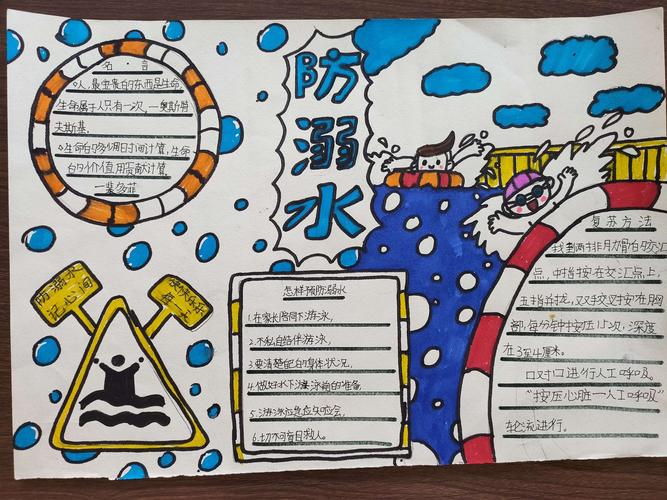 防溺水
名·言
人,最宝贵的东西是生命,
生命属于人只有一次,—奥斯特
夫斯基。
生命的多少用时间计算,生命
的价值用贡献计算
—裴多菲
防溺水
记心间
怎样预防溺水
1.在家长陪同下游泳,
2.不私自结伴游泳,
3.要清楚自己的身体状况,
4.做好水下游泳前的准备
5.游泳应急应会,
6.切不可盲目救人。
复苏方法
找到两排肋骨的交汇
点,中指按在交汇点上,
五指并拢,双手交叉按在胸
部,每分钟按压15次,深度
在3至4厘米。
口对口进行人工呼吸。
"按压心脏—人工呼吸"
轮流进行。